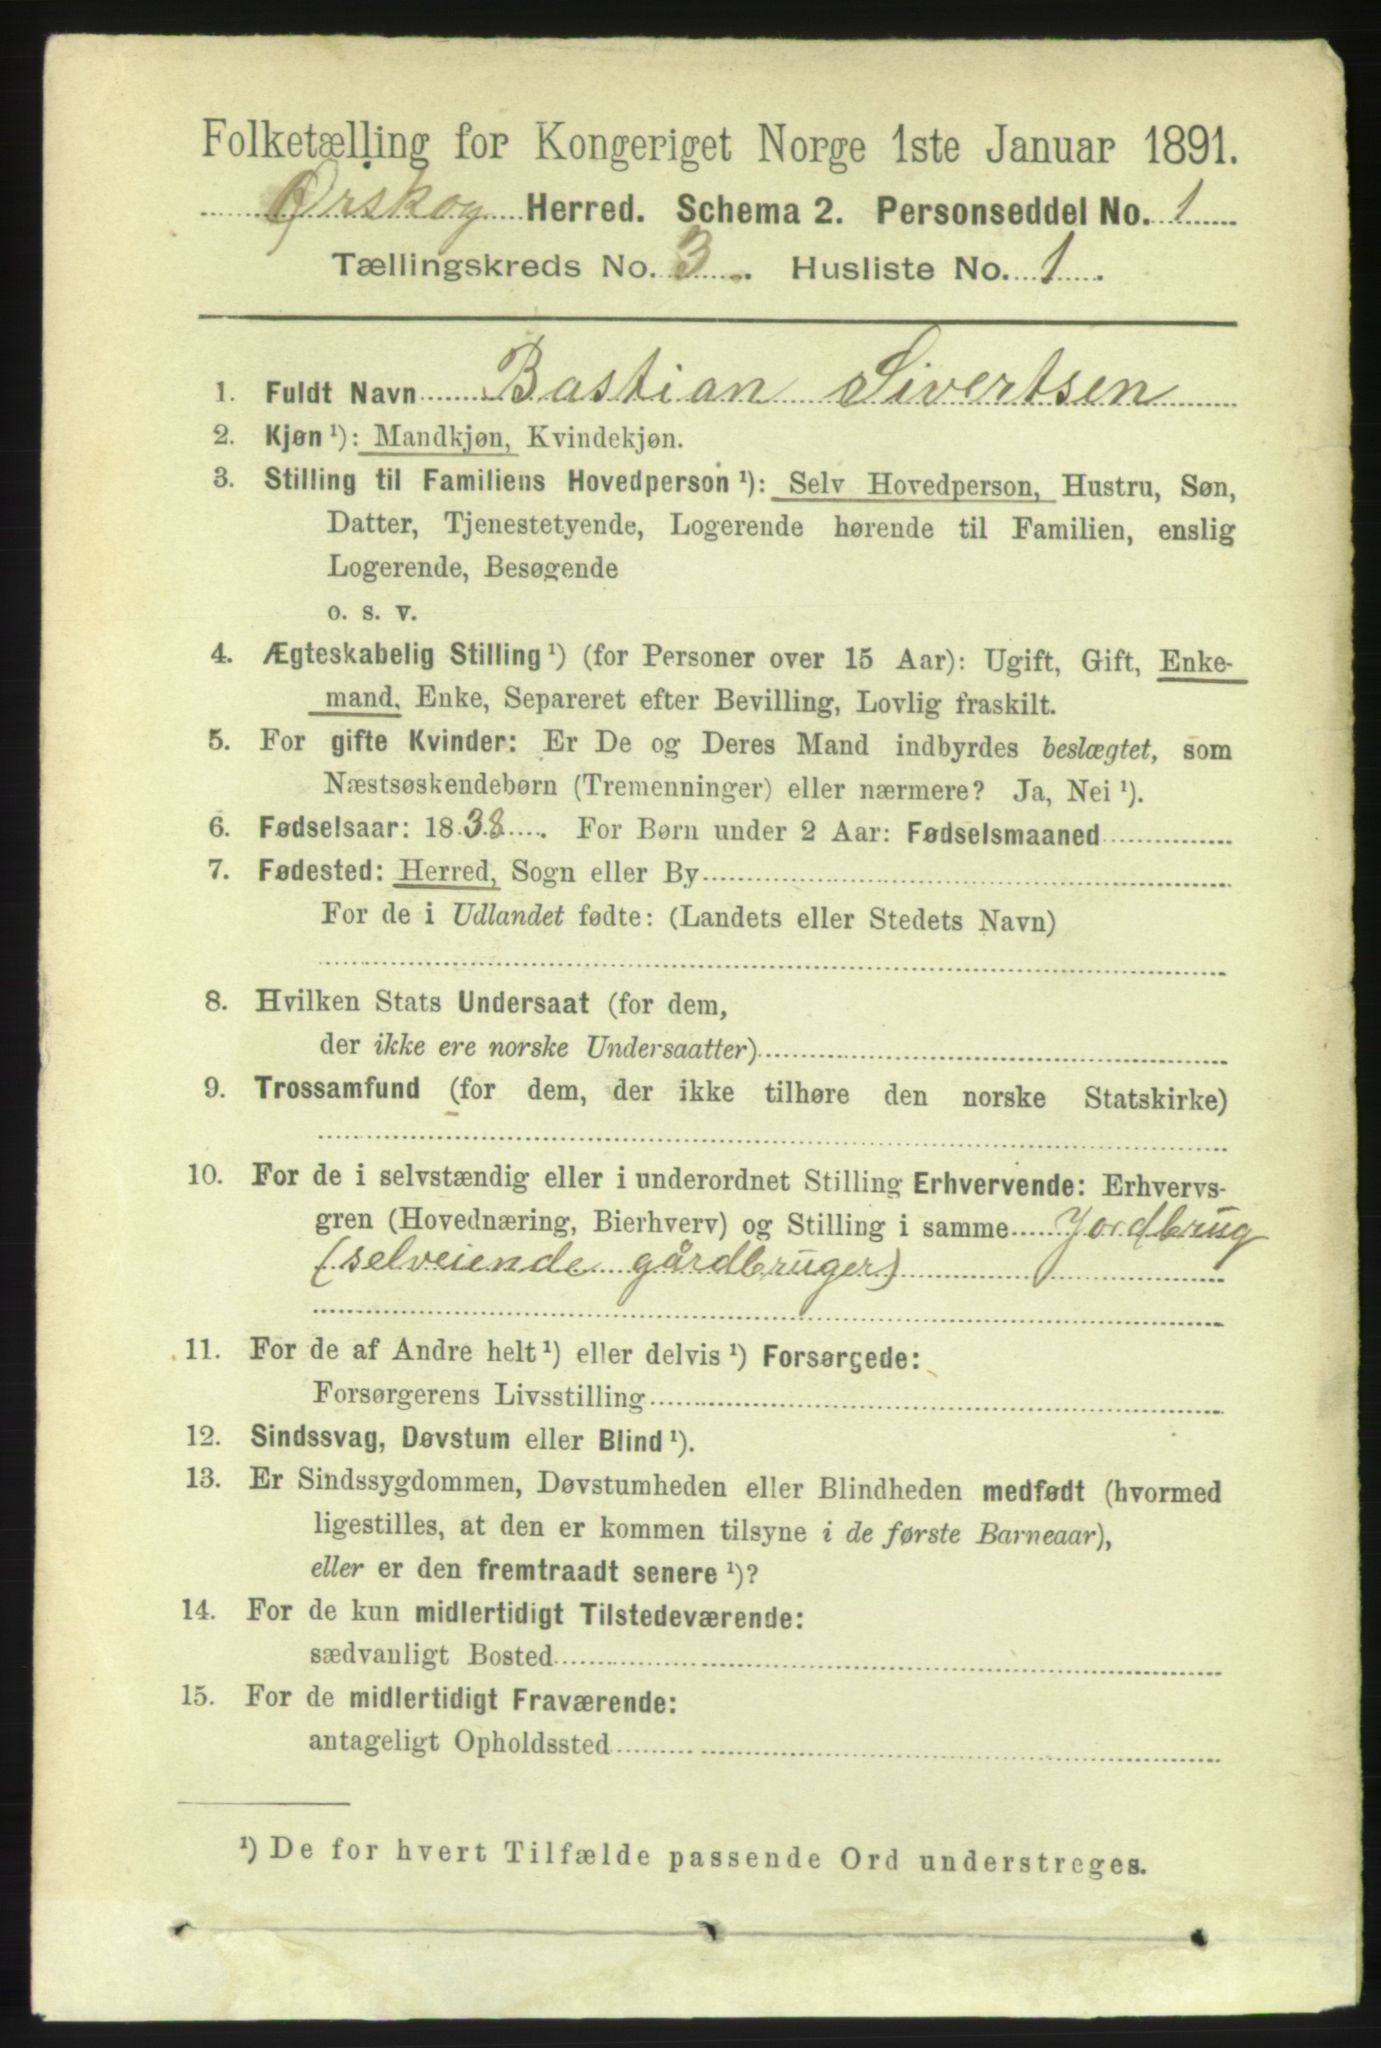 Folketælling for Kongeriget Norge 1ste Januar 1891.
Ørskog Herred. Schema 2. Personseddel No. 1
Tællingskreds No. 3. Husliste No. 1.
1. Fuldt Navn Bastian Sivertsen
2. Kjøn ¹): Mandkjøn, Kvindekjøn.
3. Stilling til Familiens Hovedperson ¹): Selv Hovedperson, Hustru, Søn,
Datter, Tjenestetyende, Logerende hørende til Familien, enslig
Logerende, Besøgende
o. s. v.
4. Ægteskabelig Stilling ¹) (for Personer over 15 Aar): Ugift, Gift, Enke-
mand, Enke, Separeret efter Bevilling, Lovlig fraskilt.
5. For gifte Kvinder: Er De og Deres Mand indbyrdes beslægtet, som
Næstsøskendebørn (Tremenninger) eller nærmere? Ja, Nei ¹).
6. Fødselsaar: 1838. For Børn under 2 Aar: Fødselsmaaned
7. Fødested: Herred, Sogn eller By
For de i Udlandet fødte: (Landets eller Stedets Navn)
8. Hvilken Stats Undersaat (for dem,
der ikke ere norske Undersaatter)
9. Trossamfund (for dem, der ikke tilhøre den norske Statskirke)
10. For de i selvstændig eller i underordnet Stilling Erhvervende: Erhvervs-
gren (Hovednæring, Bierhverv) og Stilling i samme Jordbrug
(selveiende gårdbruger)
11. For de af Andre helt ¹) eller delvis ¹) Forsørgede:
Forsørgerens Livsstilling
12. Sindssvag, Døvstum eller Blind ¹).
13. Er Sindssygdommen, Døvstumheden eller Blindheden medfødt (hvormed
ligestilles, at den er kommen tilsyne i de første Barneaar),
eller er den fremtraadt senere ¹)?
14. For de kun midlertidigt Tilstedeværende:
sædvanligt Bosted
15. For de midlertidigt Fraværende:
antageligt Opholdssted
¹) De for hvert Tilfælde passende Ord understreges.